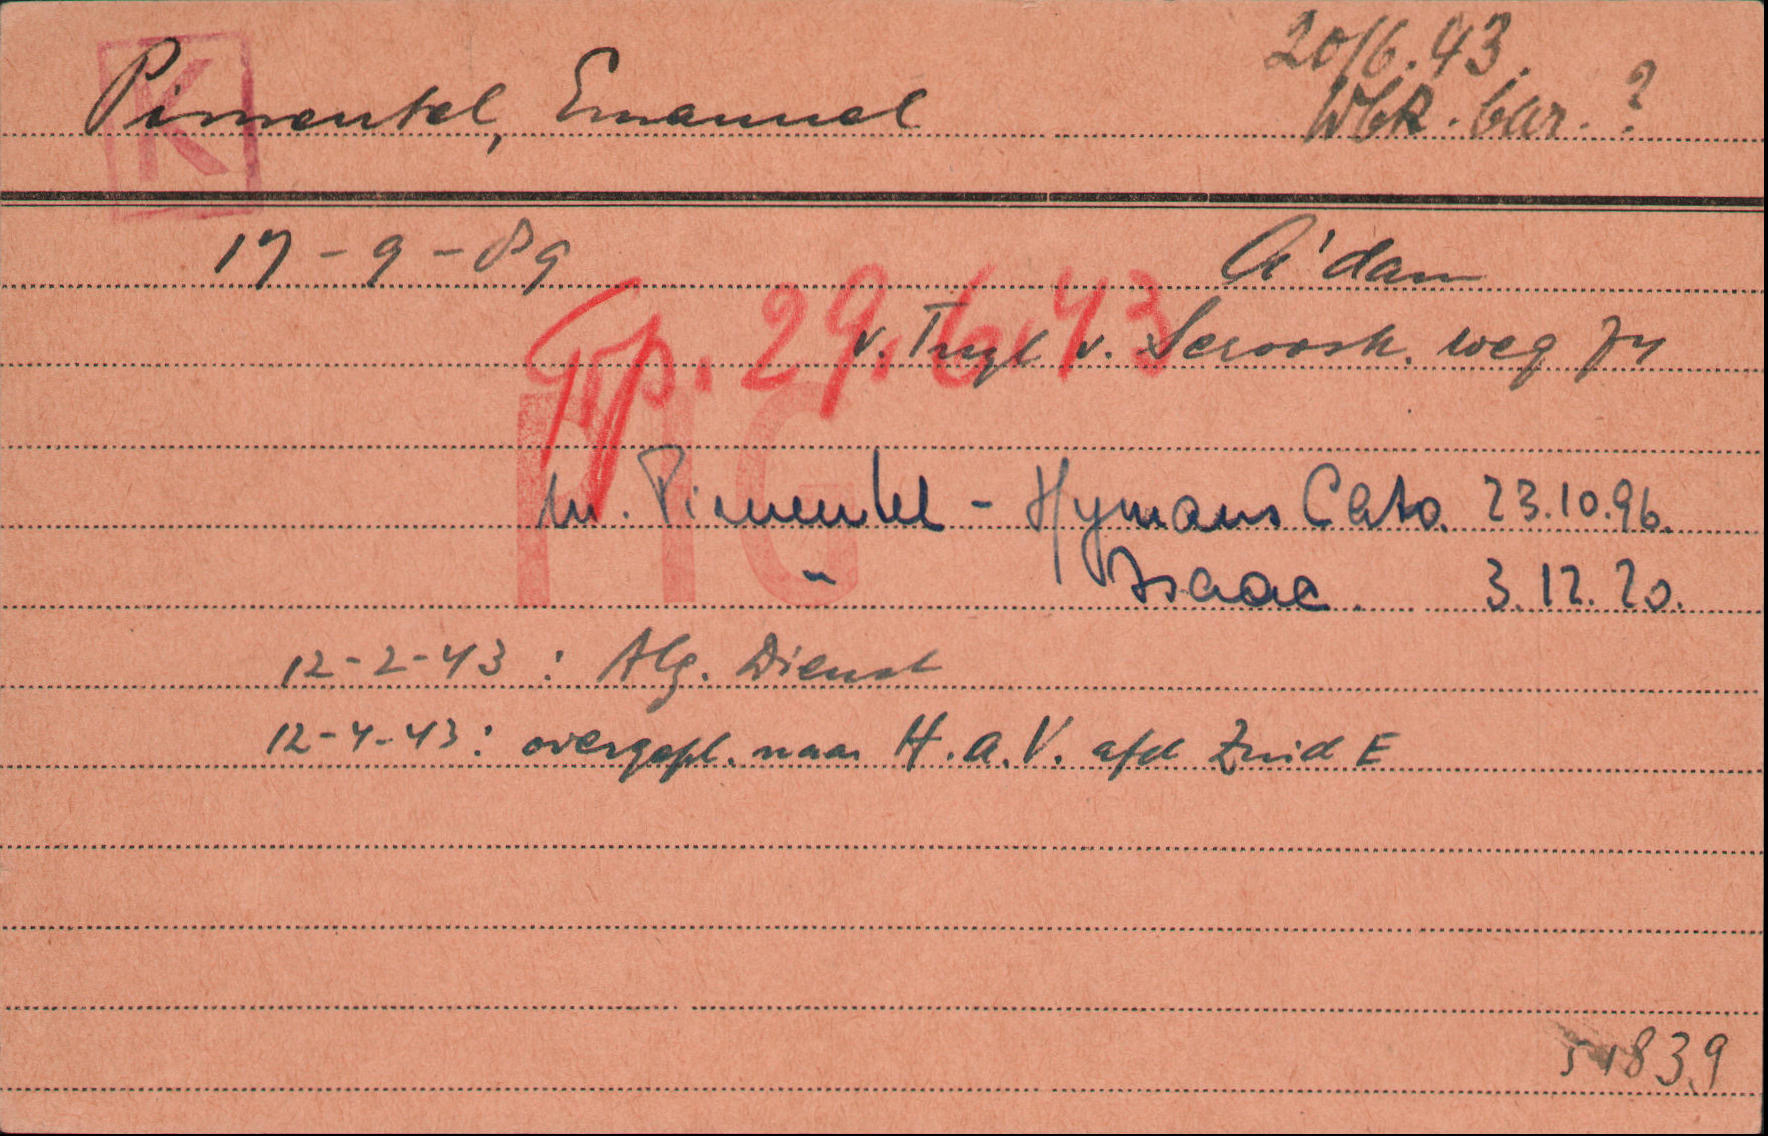 K
Pimentel, Emanuel
20/6.43.
Wbk. bar. ?
17-9-89
A'dam
Tp. 29.6.43
v. Tuyl v. Seroosk. weg 74
W. Pimentel - Hymans Cato. 23.10.96.
" Isaac. 3.12.20.
12-2-43 : Alg. Dienst
12-4-43 : overgepl. naar H.a.V. afd Zuid E
839